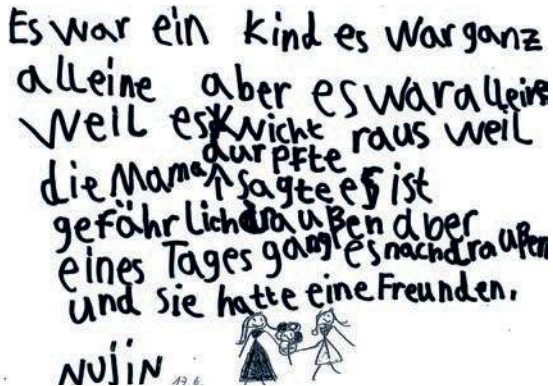 Es war ein Kind es war ganz
alleine aber es war alleine
weil es nicht raus weil
durpfte
die Mama sagte es ist
gefährlich draußen aber
eines Tages gang es nach draußen
und sie hatte eine Freunden.
NUJIN 17.6.